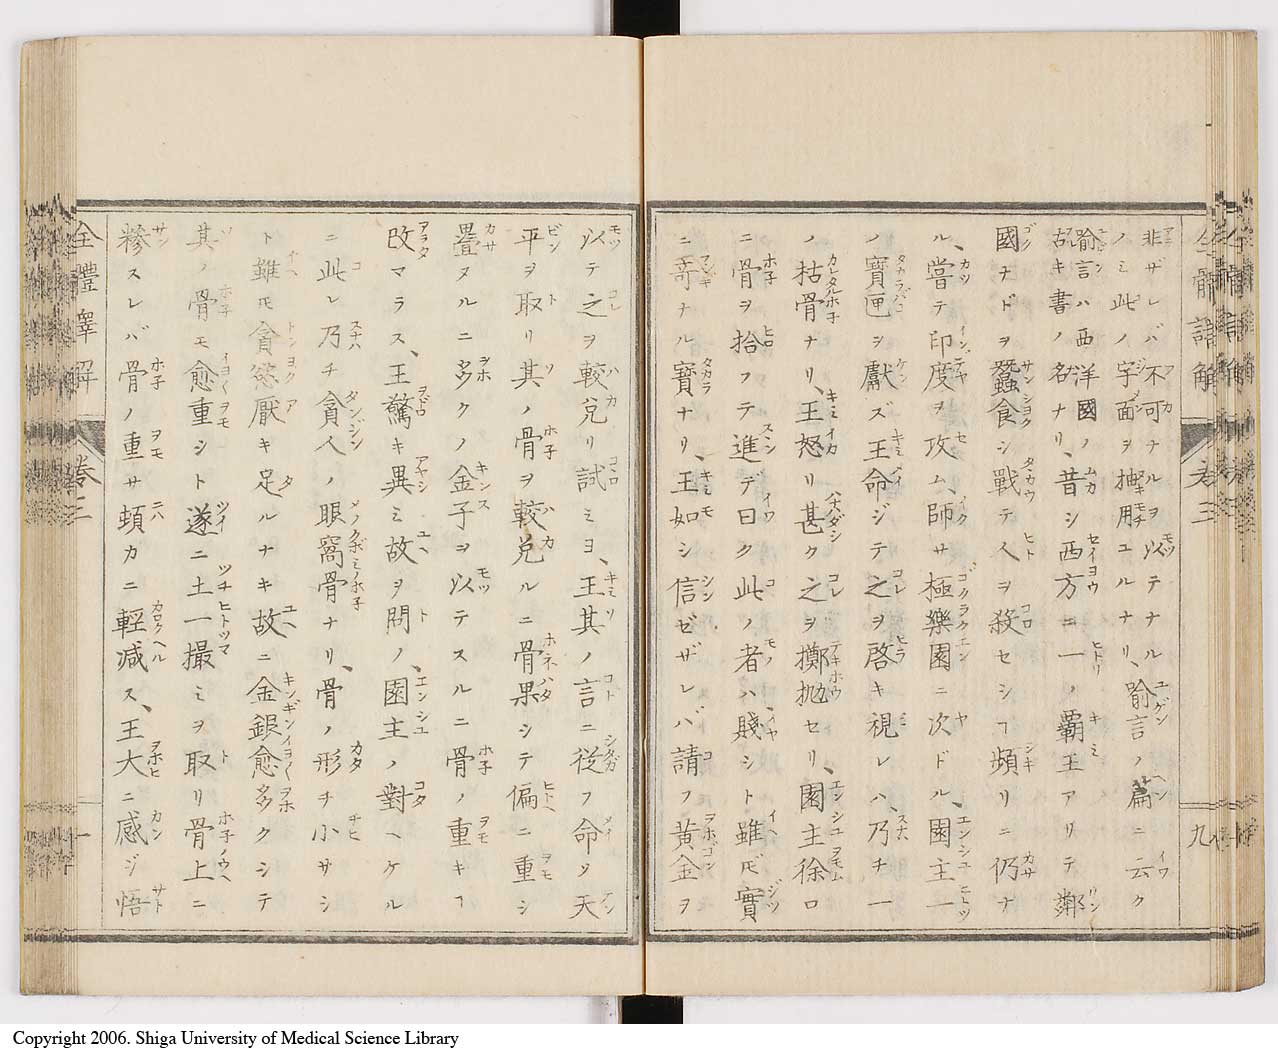 非ザレバ不可ナルヲ以テナル喩言ノ篇ニ云ク
ノミ此ノ字面ヲ抽用ユルナリ、
喩言ハ西洋國ノ
古キ書ノ名ナリ、昔シ西方ニ一ノ覇王アリテ鄰
國ナドヲ蠶食シ戰テ人ヲ殺セシヿ頻リニ仍ナ
ル、嘗テ印度ヲ攻ム、師サ極樂園ニ次ドル、園主一
ノ寶匣ヲ獻ズ王命ジテ之ヲ啓キ視レハ、乃チ一
ノ枯骨ナリ、王怒リ甚ク之ヲ擲抛セリ、園主徐ロ
ニ骨ヲ拾フテ進デ曰ク此ノ者ハ賤シト雖ヒ實
ニ奇ナル寶ナリ、王如シ信ゼザレバ請フ黄金ヲ
全體譯解
卷三
九
以テ之ヲ較兌リ試ミヨ、王其ノ言ニ従フ命ヲ天
平ヲ取リ其ノ骨ヲ較兌ルニ骨果シテ偏ニ重シ
疊タルニ多クノ金子ヲ以テスルニ骨ノ重キヿ
改マラス、王驚キ異ミ故ヲ問ノ、園主ノ對ヘケル
ニ此レ乃チ貪人ノ眼窩骨ナリ、骨ノ形チ小サシ
ト雖モ貪慾厭キ足ルナキ故ニ金銀愈多クシテ
其ノ骨モ愈重シト遂ニ土一撮ミヲ取リ骨上ニ
糝スレバ骨ノ重サ頓カニ輕減ス、王大ニ感ジ悟
全體譯解
卷三
Copyright 2006. Shiga University of Medical Science Library